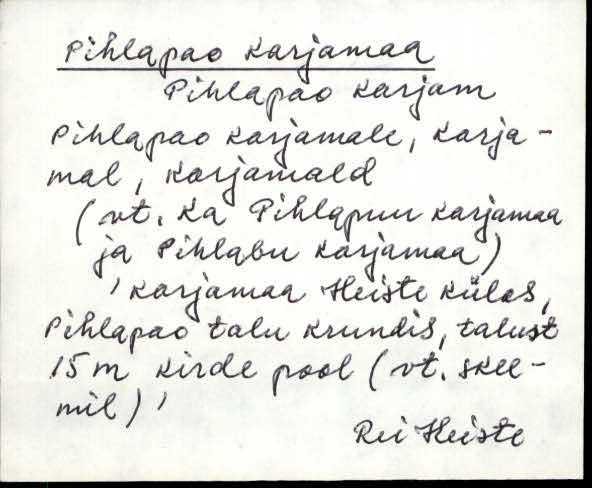 Pihlapao karjamaa
Pihlapao karjam
Pihlapao karjamale, karja-
mal, karjamald
(vt. ka Pihlapuu karjamaa
ja Pihlabu karjamaa)
'karjamaa Heiste külas,
Pihlapao talu krundis, talust
15 m kirde pool (vt. skee-
mil)'
Rei Heiste